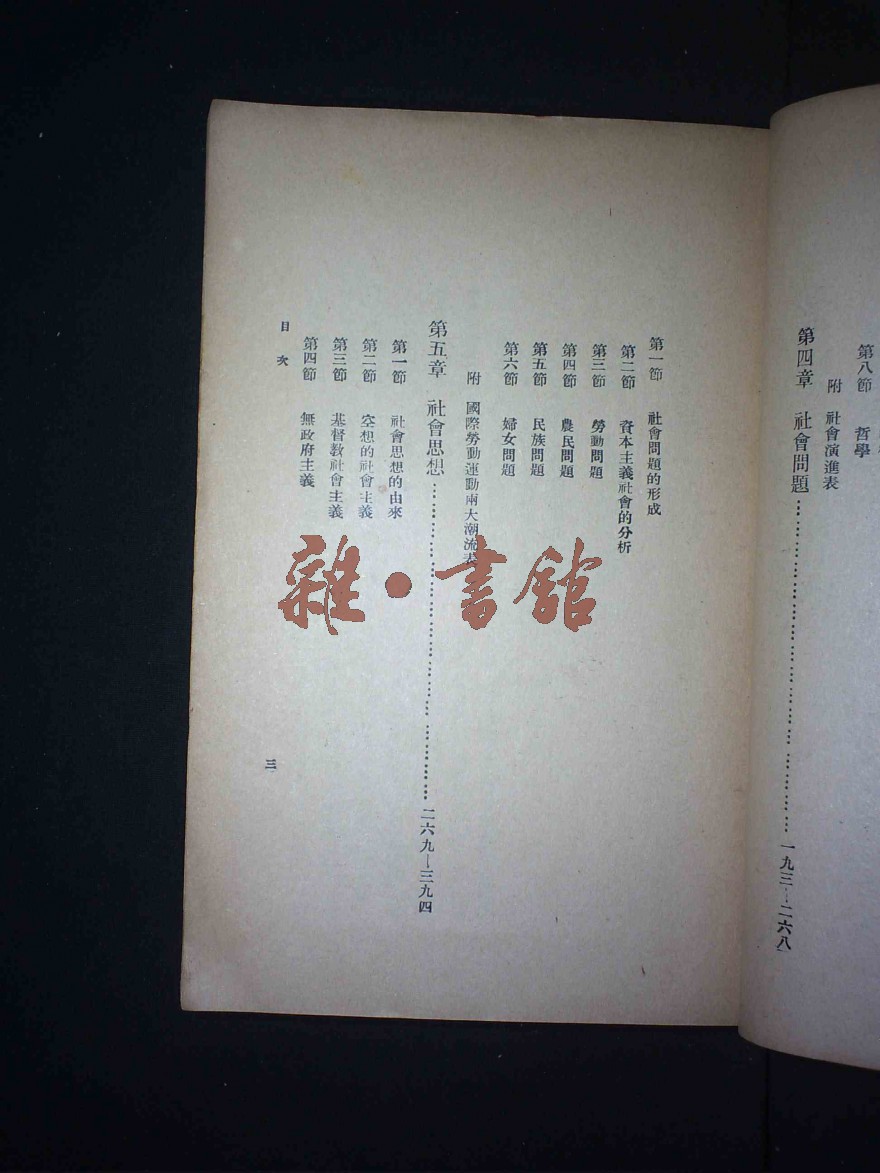 第八節 哲學
附 社會演進表
第四章 社會問題 一九三—二六八
第一節 社會問題的形成
第二節 資本主義社會的分析
第三節 勞動問題
第四節 農民問題
第五節 民族問題
第六節 婦女問題
附 國際勞動運動兩大潮流表
第五章 社會思想 二六九—三九四
第一節 社會思想的由來
第二節 空想的社會主義
第三節 基督教社會主義
第四節 無政府主義
目次
三
雜·書館